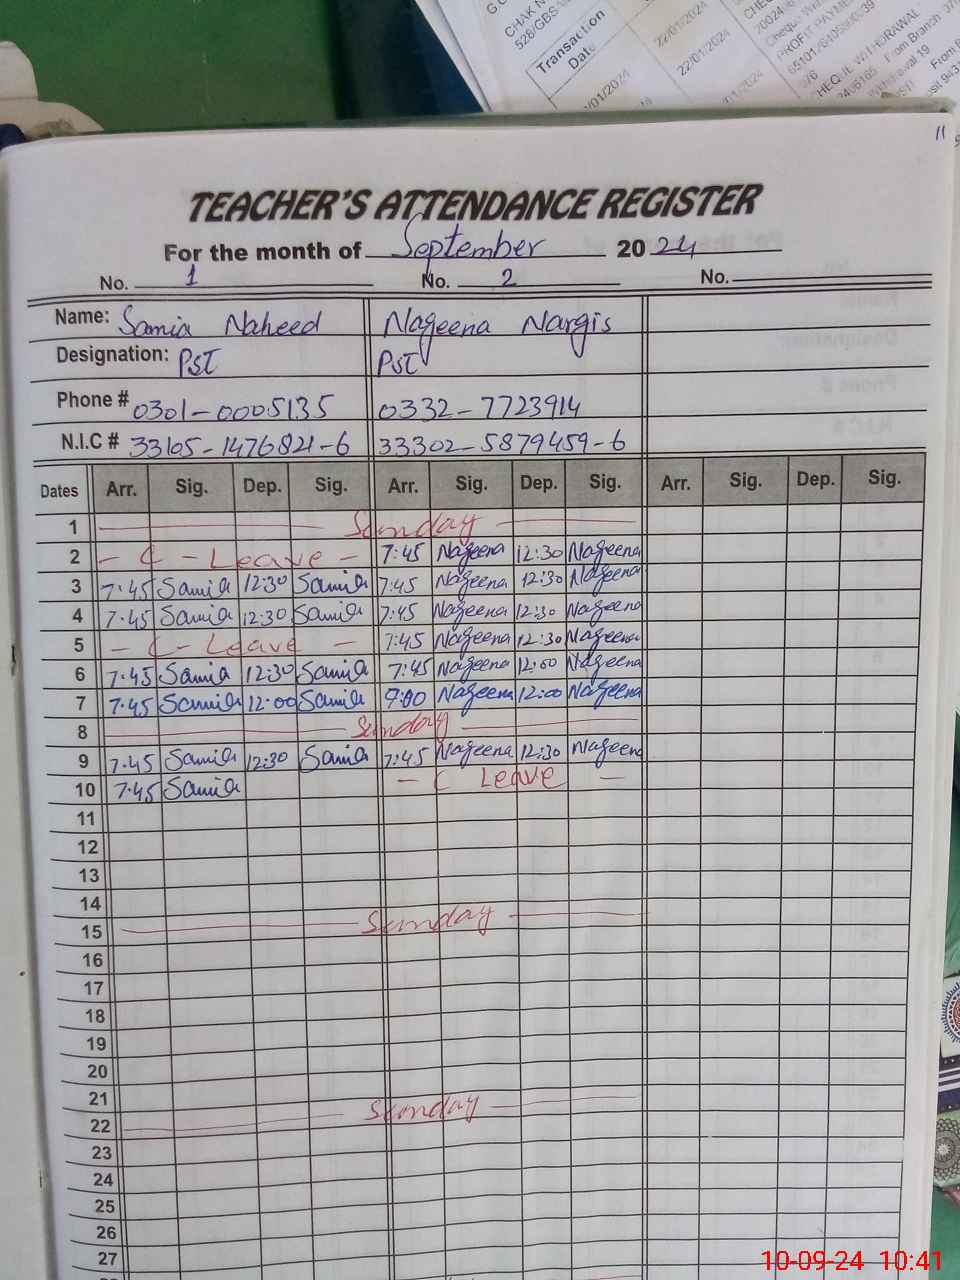 CHAK N
528/GBS-
Transaction
Date
22/01/2024
22/01/2024
/01/2024
PROFIT PAYME
CHEQ.IL WITHDRAWAL
From Branch
11
TEACHER'S ATTENDANCE REGISTER
For the month of September 2024
No. 1 No. 2 No.
Name: Samia Naheed Nageena Nargis
Designation: PST PST
Phone # 0301-0005135 0332-7723914
N.I.C # 33105-1476821-6 33302-5879459-6
Dates Arr. Sig. Dep. Sig. Arr. Sig. Dep. Sig. Arr. Sig. Dep. Sig.
1 Sunday
2 - C - Leave - 7:45 Nageena 12:30 Nageena
3 7.45 Samia 12:30 Samia 7:45 Nageena 12:30 Nageena
4 7.45 Samia 12:30 Samia 7:45 Nageena 12:30 Nageena
5 - C - Leave - 7:45 Nageena 12:30 Nageena
6 7.45 Samia 12:30 Samia 7:45 Nageena 12:00 Nageena
7 7.45 Samia 12:00 Samia 9:00 Nageena 12:00 Nageena
8 Sunday
9 7.45 Samia 12:30 Samia 7:45 Nageena 12:30 Nageena
10 7.45 Samia - C Leave -
11
12
13
14
15 Sunday
16
17
18
19
20
21
22 Sunday
23
24
25
26
27
10-09-24 10:41